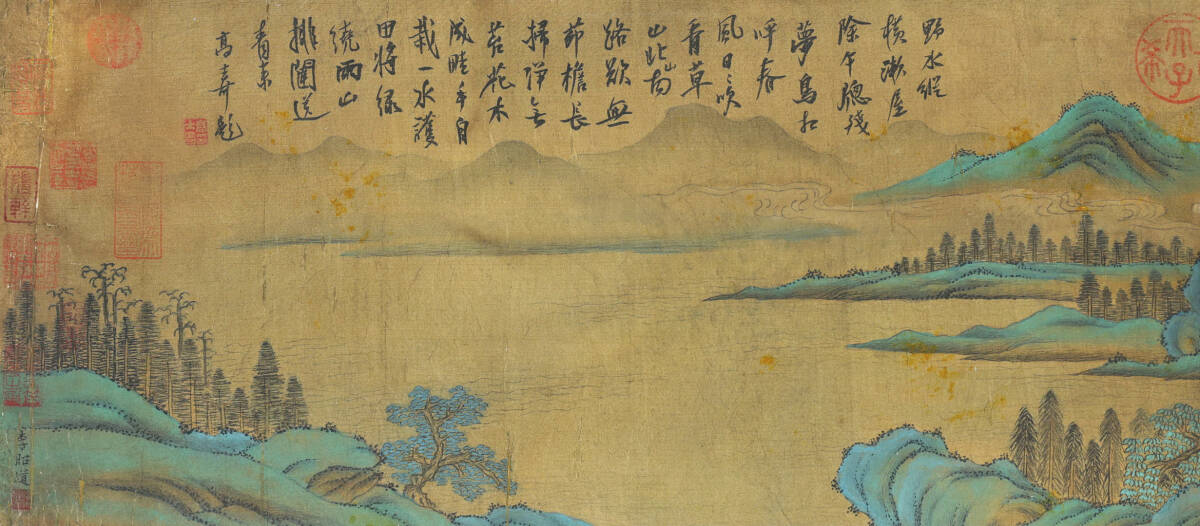 野水縱
橫漱屋
除午牕殘
夢鳥相
呼春
風日々吹
香草
山北山南
路欲無
茆檐長
掃淨無
苔花木
成畦手自
栽一水護
田將綠
繞兩山
排闥送
青來
高題
李昭道